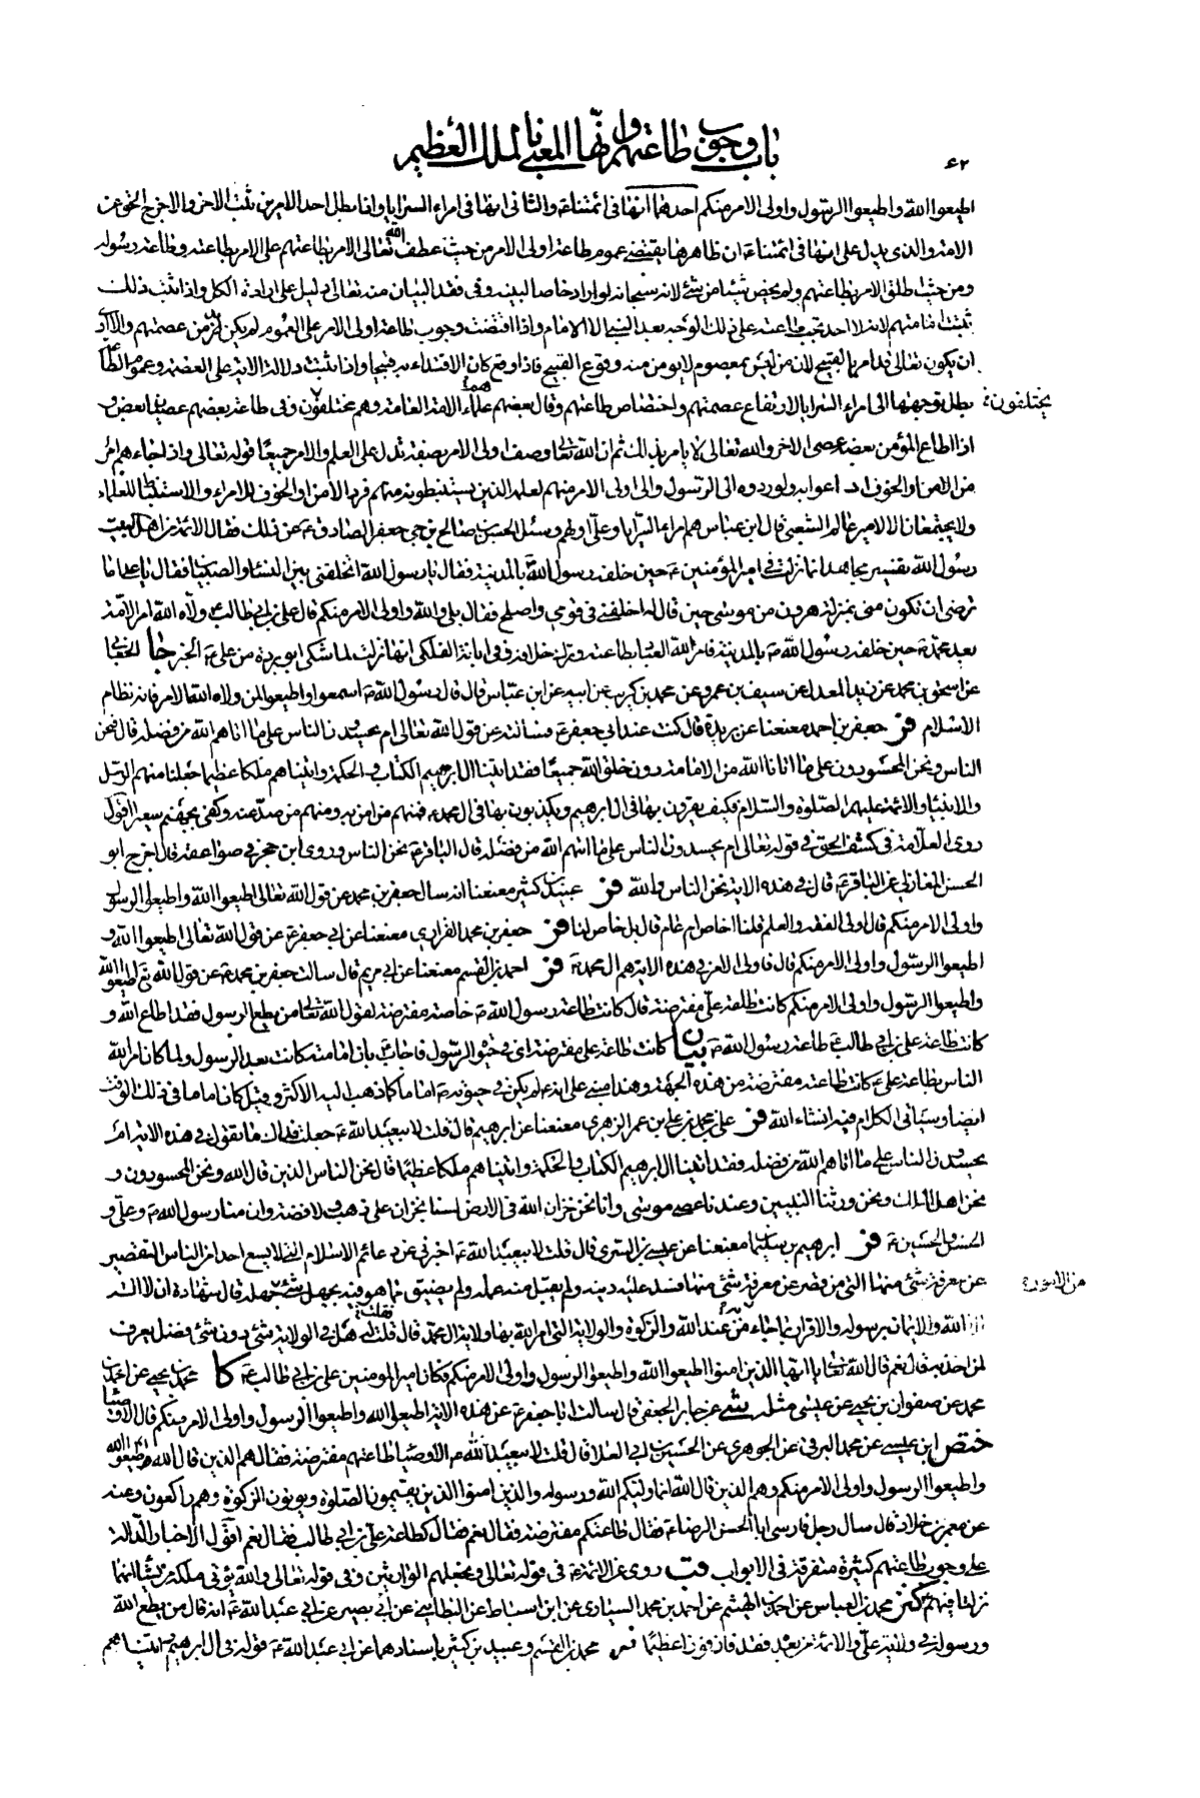 باب وجوب طاعتهم وانها المعني بالملك العظيم
۶۲
اطيعوا الله واطيعوا الرسول واولى الامر منكم احدهما انها فى ائمتنا ع والثانى انها فى امراء السرايا واذا بطل احد الامرين ثبت الاخر والا خرج الحق عن
الامة والذى يدل على انها فى ائمتنا ع ان ظاهرها يقتضى عموم طاعة اولى الامر من حيث عطف الله تعالى الامر بطاعتهم على الامر بطاعته وطاعة رسوله
ومن حيث اطلق الامر بطاعتهم ولم يخص شيئا من شئ لانه سبحانه لو اراد خاصا لبينه وفى فقد البيان منه تعالى دليل على ارادة الكل واذا ثبت ذلك
ثبتت امامتهم لانه لا احد تجب طاعته على ذلك الوجه بعد النبى الا الامام واذا اقتضت وجوب طاعة اولى الامر على العموم لم يكن بد من عصمتهم والا ادى
ان يكون تعالى قد امر بالقبيح لان من ليس بمعصوم لا يؤمن منه وقوع القبيح فاذا وقع كان الاقتداء به قبيحا واذا ثبتت دلالة الاية على العصمة وعموم الطاعة
بطل توجهها الى امراء السرايا لارتفاع عصمتهم واختصاص طاعتهم وقال بعضهم علماء الامة العامة وهم مختلفون وفى طاعة بعضهم عصيان بعض و
يختلفون
اذا اطاع المؤمن بعضهم عصى الاخر والله تعالى لا يامر بذلك ثم ان الله تعالى وصف اولى الامر بصفة تدل على العلم والامر جميعا قوله تعالى واذا جاءهم امر
من الامن او الخوف اذاعوا به ولو ردوه الى الرسول والى اولى الامر منهم لعلمه الذين يستنبطونه منهم فرد الامن او الخوف للامراء والاستنباط للعلماء
ولا يجتمعان الا لامير عالم الشعبى قال ابن عباس هم امراء السرايا وعلى اولهم وسئل الحسن بن صالح بن حى جعفر الصادق ع عن ذلك فقال الائمة من اهل بيت
رسول الله تفسير مجاهد انها نزلت فى امير المؤمنين ع حين خلفه رسول الله بالمدينة فقال يا رسول الله اتخلفنى بين النساء والصبيان فقال يا على اما
ترضى ان تكون منى بمنزلة هرون من موسى حين قال له اخلفنى فى قومى واصلح فقال بلى والله واولى الامر منكم قال على بن ابى طالب ع ولاه الله امر الامة
بعد محمد ص حين خلفه رسول الله ص بالمدينة فامر الله العباد بطاعته وترك خلافه وفى ابانة الفلكى انها نزلت لما شكى ابو بردة من على ع الخبر جا الجعابى
عن اسحق بن محمد عن زيد المعدل عن سيف بن عمرو عن محمد بن كريب عن ابيه عن ابن عباس قال قال رسول الله ص اسمعوا واطيعوا لمن ولاه الله الامر فانه نظام
الاسلام فر جعفر بن احمد معنعنا عن بريدة قال كنت عند ابى جعفر ع فسالته عن قول الله تعالى ام يحسدون الناس على ما اتاهم الله من فضله قال فنحن
الناس ونحن المحسودون على ما اتانا الله من الامامة دون خلق الله جميعا فقد اتينا ال ابرهيم الكتاب والحكمة واتيناهم ملكا عظيما جعلنا منهم الرسل
والانبياء والائمة عليهم الصلوة والسلام فكيف يقرون بها فى ال ابرهيم ويكذبون بها فى ال محمد ع فمنهم من امن به ومنهم من صد عنه وكفى بجهنم سعيرا اقول
روى العلامة فى كشف الحق فى قوله تعالى ام يحسدون الناس على ما اتيهم الله من فضله قال الباقر ع نحن الناس وروى ابن حجر فى صواعقه قال اخرج ابو
الحسن المغازلى عن الباقر ع قال فى هذه الاية نحن الناس والله فر عبيد بن كثير معنعنا انه سال جعفر بن محمد عن قول الله تعالى اطيعوا الله واطيعوا الرسول
واولى الامر منكم قال اولى الفقه والعلم قلنا اخاص ام عام قال بل خاص لنا فر جعفر بن محمد الفزارى معنعنا عن ابى جعفر ع عن قول الله تعالى اطيعوا الله و
اطيعوا الرسول واولى الامر منكم قال فاولى الامر فى هذه الاية هم ال محمد ص فر احمد بن القسم معنعنا عن ابى مريم قال سالت جعفر بن محمد ع عن قول الله تع اطيعوا الله
واطيعوا الرسول واولى الامر منكم كانت طاعة على مفترضة قال كانت طاعة رسول الله ص خاصة مفترضة لقول الله تعالى من يطع الرسول فقد اطاع الله و
كانت طاعة على بن ابى طالب ع طاعة رسول الله ص بيان كانت طاعة على مفترضة اى فى حيوة الرسول فاجاب ع بان امامته كانت بعد الرسول ولما كان امر الله
الناس بطاعة على ع كانت طاعته مفترضة من هذه الجهة وهذا مبنى على انه ع لم يكن فى حيوته ص اماما كما ذهب اليه الاكثر وقيل كان اماما فى ذلك الوقت
ايضا وسياتى الكلام فيه انشاء الله فر على بن محمد بن على بن عمر الزهرى معنعنا عن ابرهيم قال قلت لابيعبد الله ع جعلت فداك ما تقول فى هذه الاية ام
يحسدون الناس على ما اتاهم الله من فضله فقد اتينا ال ابرهيم الكتاب والحكمة واتيناهم ملكا عظيما قال نحن الناس الذين قال الله ونحن المحسودون و
نحن اهل الملك ونحن ورثنا النبيين وعندنا عصى موسى وانا نحن خزان الله فى الارض لسنا بخزان على ذهب ولا فضة وان منا رسول الله ص وعلى و
الحسن والحسين ع فر ابرهيم بن سليمان معنعنا عن عيسى بن السرى قال قلت لابيعبد الله ع اخبرنى عن دعائم الاسلام التى لا يسع احدا من الناس التقصير
عن معرفة شئ منها التى من قصر عن معرفة شئ منها فسد عليه دينه ولم يقبل منه عمله ولم يضيق مما هو فيه بجهل شئ جهله قال شهادة ان لا اله
من الامور
الا الله والايمان برسوله والاقرار بما جاء من عند الله والزكوة والولاية التى امر الله بها ولاية ال محمد قال قلت له هل فى الولاية شئ دون شئ فضل يعرف
لمن اخذ به قال نعم قال الله تعالى يا ايها الذين امنوا اطيعوا الله واطيعوا الرسول واولى الامر منكم فكان امير المومنين على بن ابى طالب ع كا محمد بن يحيى عن احمد بن
محمد عن صفوان بن يحيى عن عيسى مثله شى عن جابر الجعفى قال سالت ابا جعفر ع عن هذه الاية اطيعوا الله واطيعوا الرسول واولى الامر منكم قال الاوصياء
ختص ابن عيسى عن محمد البرقى عن الجوهرى عن الحسين بن ابى العلا قال قلت لابيعبد الله ع الاوصيا طاعتهم مفترضة فقال هم الذين قال الله اطيعوا الله
واطيعوا الرسول واولى الامر منكم وهم الذين قال الله انما وليكم الله ورسوله والذين امنوا الذين يقيمون الصلوة ويوتون الزكوة وهم راكعون وعنه
عن معمر بن خلاد قال سال رجل فارسى ابا الحسن الرضا ع فقال طاعتكم مفترضة فقال نعم فقال كطاعة على بن ابى طالب فقال نعم اقول الاخبار الدالة
على وجوب طاعتهم كثيرة متفرقة فى الابواب قب روى عن الائمة ع فى قوله تعالى ونجعلهم الوارثين وفى قوله تعالى والله يؤتى ملكه من يشاء انهما
نزلتا فيهم كنز محمد بن العباس عن احمد بن الهيثم عن احمد بن محمد السيارى عن ابن اسباط عن البطاينى عن ابى بصير عن ابى عبد الله ع انه قال من يطع الله
ورسوله فى ولاية على والائمة من بعده فقد فاز فوزا عظيما فر محمد بن القسم وعبيد بن كثير باسنادهما عن ابى عبد الله ع فى قوله فى ال ابرهيم واتيناهم